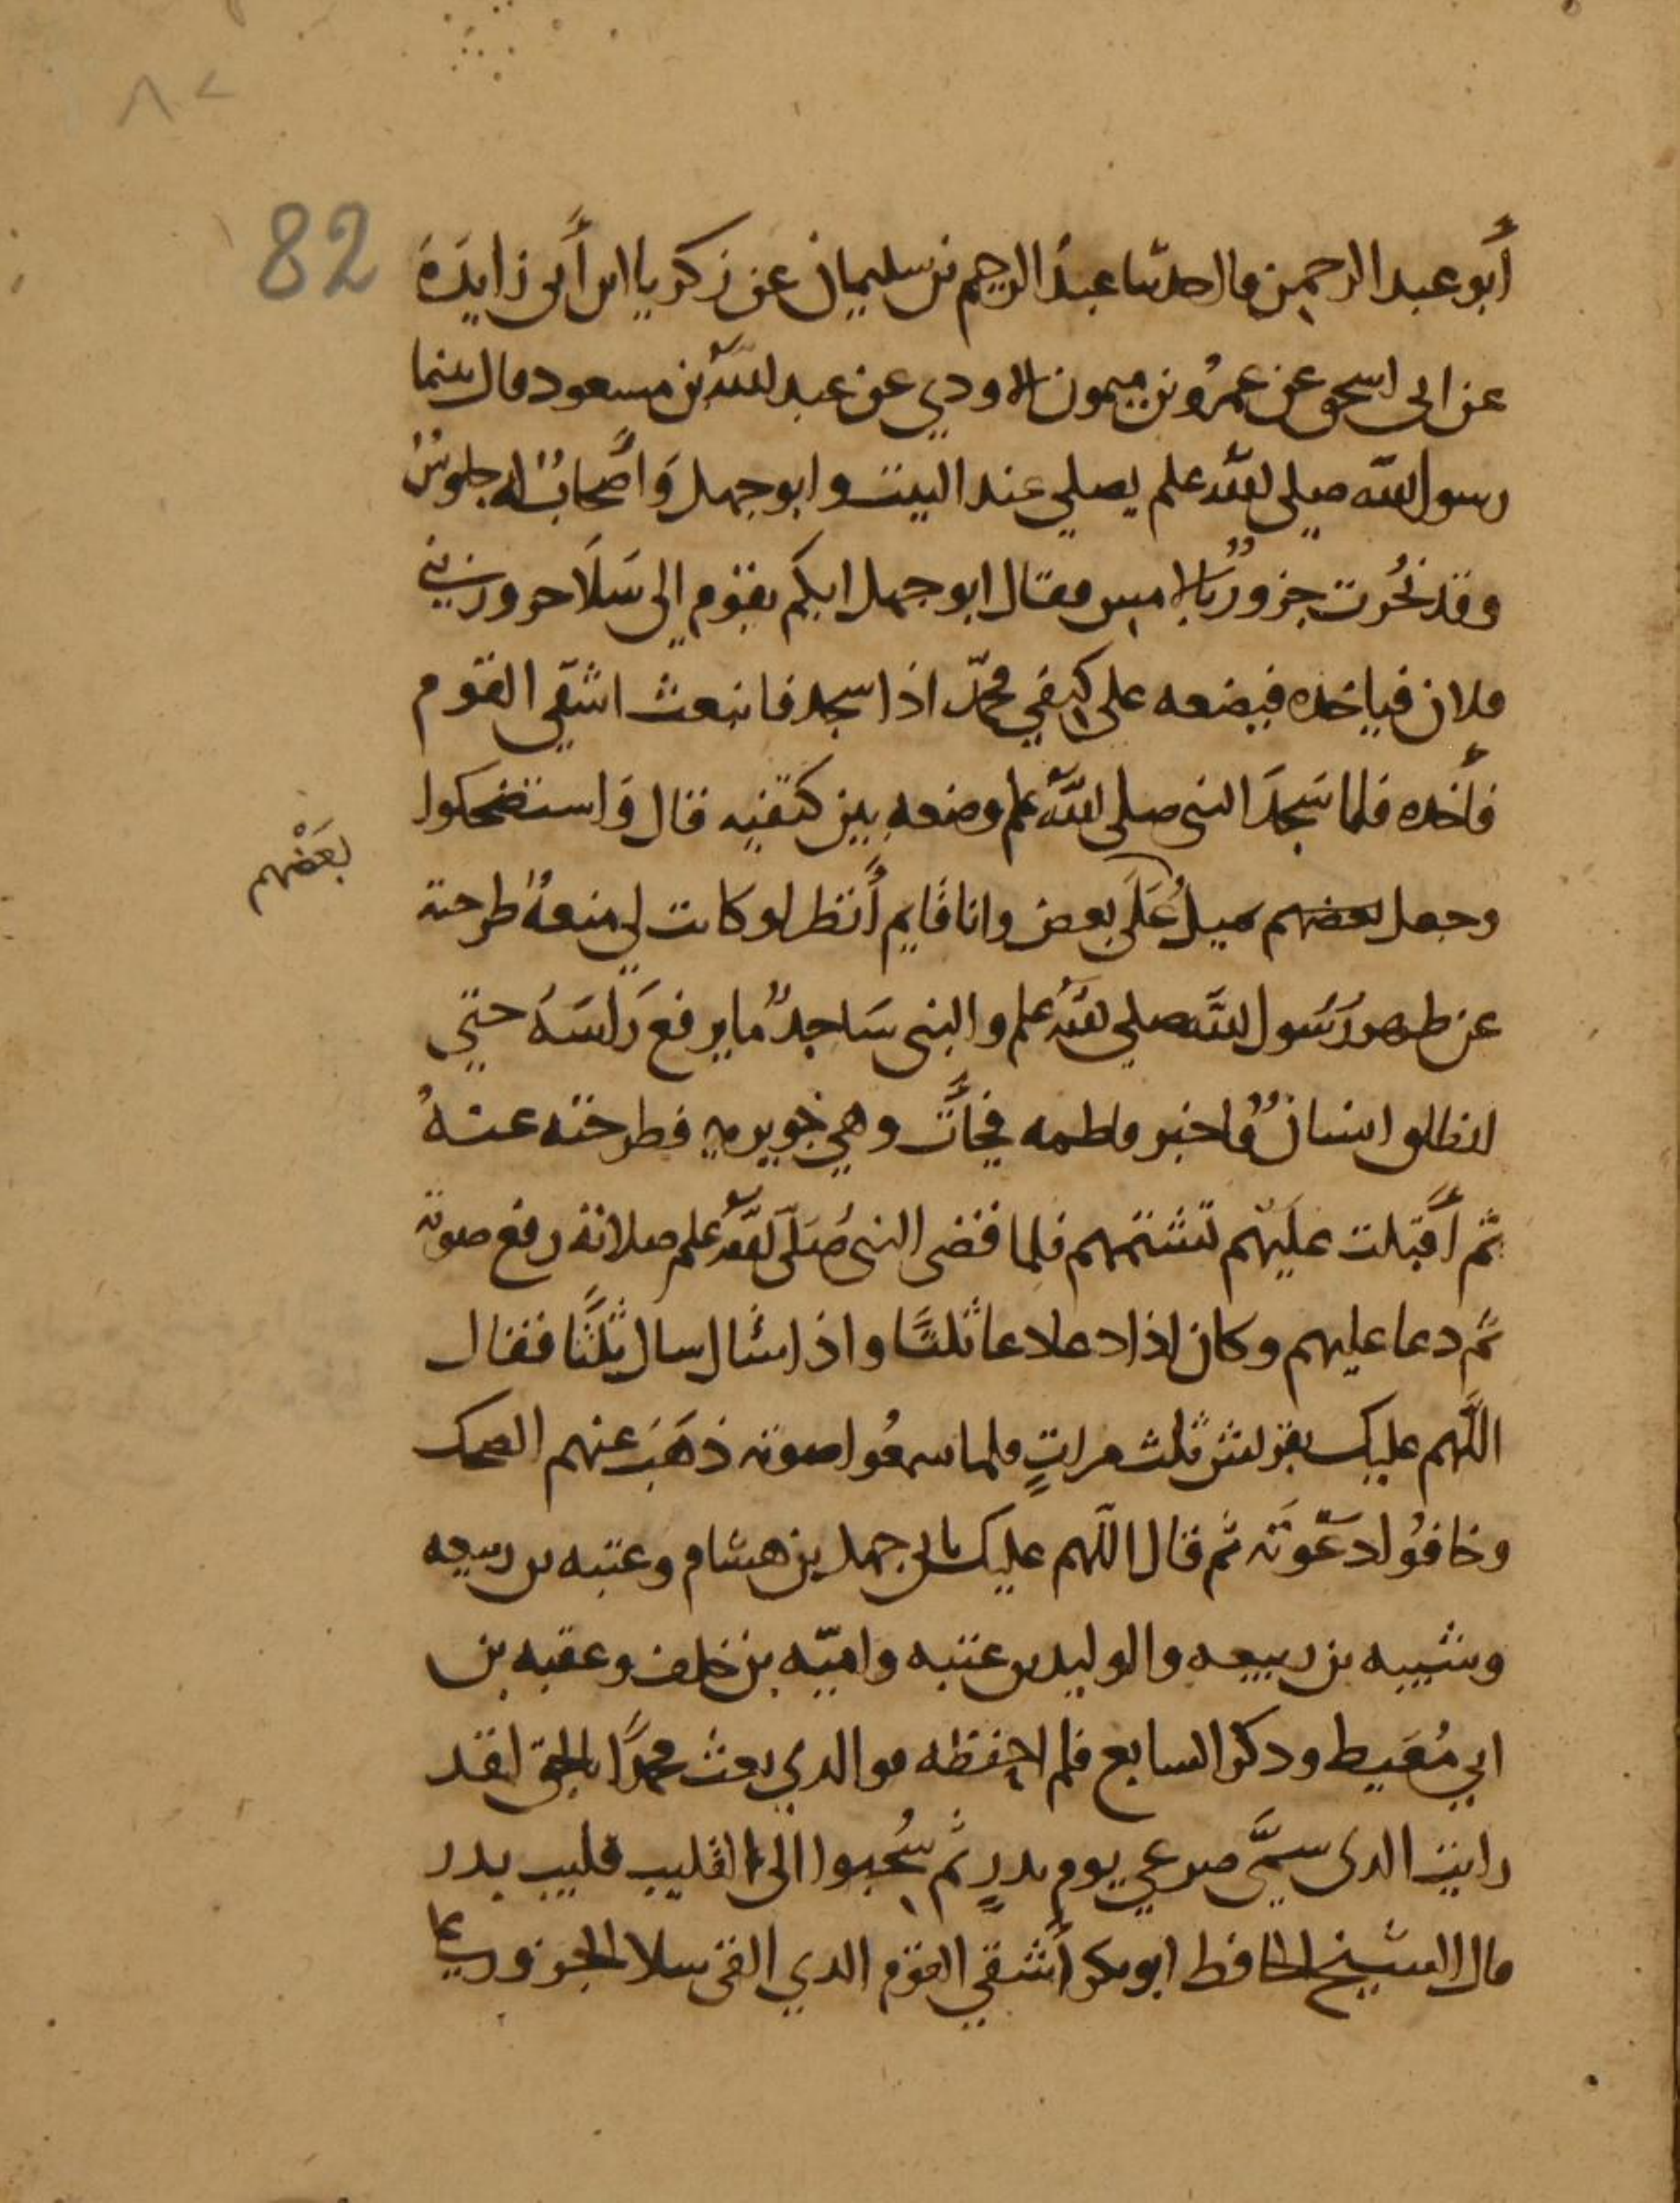 ٨٢
82
أبو عبد الرحمن قال حدثنا عبد الرحيم بن سليمان عن زكريا ابن أبي زايدة
عن ابي اسحق عن عمرو بن ميمون الاودي عن عبد الله بن مسعود قال بينما
رسول الله صلى الله علم يصلي عند البيت وابو جهل وأصحاب له جلوس
وقد نحرت جزور بالامس فقال ابو جهل ايكم يقوم إلى سلا جزور بني
فلان فياخذه فيضعه على كتفي محمد اذا سجد فانبعث اشقى القوم
فأخذه فلما سجد النبي صلى الله علم وضعه بين كتفيه قال واستضحكوا
بعضهم
وجعل بعضهم يميل على بعض وانا قايم أنظر لو كانت لي منعة طرحته
عن ظهر رسول الله صلى الله علم والنبي ساجد ما يرفع رأسه حتى
انطلق انسان فاخبر فاطمه فجأت وهي جويريه فطرحته عنه
ثم أقبلت عليهم تشتمهم فلما قضى النبي صلى الله علم صلاته رفع صوته
ثم دعا عليهم وكان اذا دعا دعا ثلثا واذا سأل سال ثلثا فقال
اللهم عليك بقريش ثلث مرات فلما سمعوا صوته ذهب عنهم الضحك
وخافوا دعوته ثم قال اللهم عليك بابي جهل بن هشام وعتبه بن ربيعه
وشيبه بن ربيعه والوليد بن عتبه واميه بن خلف وعقبه بن
ابي معيط وذكر السابع فلم احفظه فوالذي بعث محمدا بالحق لقد
رايت الذي سمى صرعى يوم بدر ثم سحبوا الى القليب قليب بدر
قال الشيخ الحافظ ابو بكر أشقى القوم الذي القى سلا الجزور